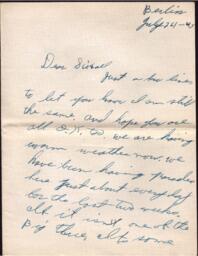 Berlin
July 24-45
Dear
Just a few lines
to let you know I am still
the same, and hope you are
all O.K. too, we are having
warm weather now. we
have been having parades
here just about everyday
for the last two weeks,
if it isn't one of the
Big three, its some